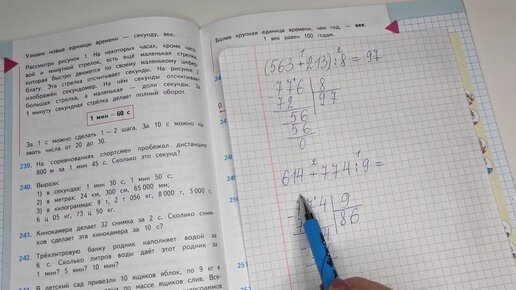 Узнаем новые единицы времени — секунду, век.
Рассмотрим рисунок 1. На некоторых часах, кроме часо-
вой и минутной стрелок, есть ещё маленькая стрелка,
которая быстро движется по своему маленькому цифер-
блату. Эта стрелка отсчитывает секунды. На рисунке 2
изображён секундомер. На нём секунды отсчитывает
большая стрелка, а маленькая — доли секунды. За
1 минуту секундная стрелка делает полный оборот.
1 мин = 60 с
За 1 с можно сделать 1—2 шага. За 10 с можно на-
звать числа от 20 до 30.
239. На соревнованиях спортсмен пробежал дистанцию
800 м за 1 мин 45 с. Сколько это секунд?
240. Вырази:
1) в секундах: 1 мин 30 с, 1 мин 50 с;
2) в метрах: 24 км, 300 см, 65 000 мм;
3) в килограммах: 9 т, 2 т 056 кг, 8 000 г, 3 000 г,
6 ц 05 кг, 73 ц 50 кг.
241. Кинокамера делает 32 снимка за 2 с. Сколько сним-
ков сделает эта кинокамера за 10 с?
242. Трёхлитровую банку родник наполняет водой за
6 с. Сколько литров воды даёт этот родник за
1 мин? 5 мин? 10 мин?
В детский сад привезли 10 ящиков яблок, по 9 кг в
Более крупная единица времени, чем год, — век.
1 век равен 100 годам.
1 2
(563+213):8=97
776 8
72 97
56
56
0
2 1
614+774:9=
9
86
251